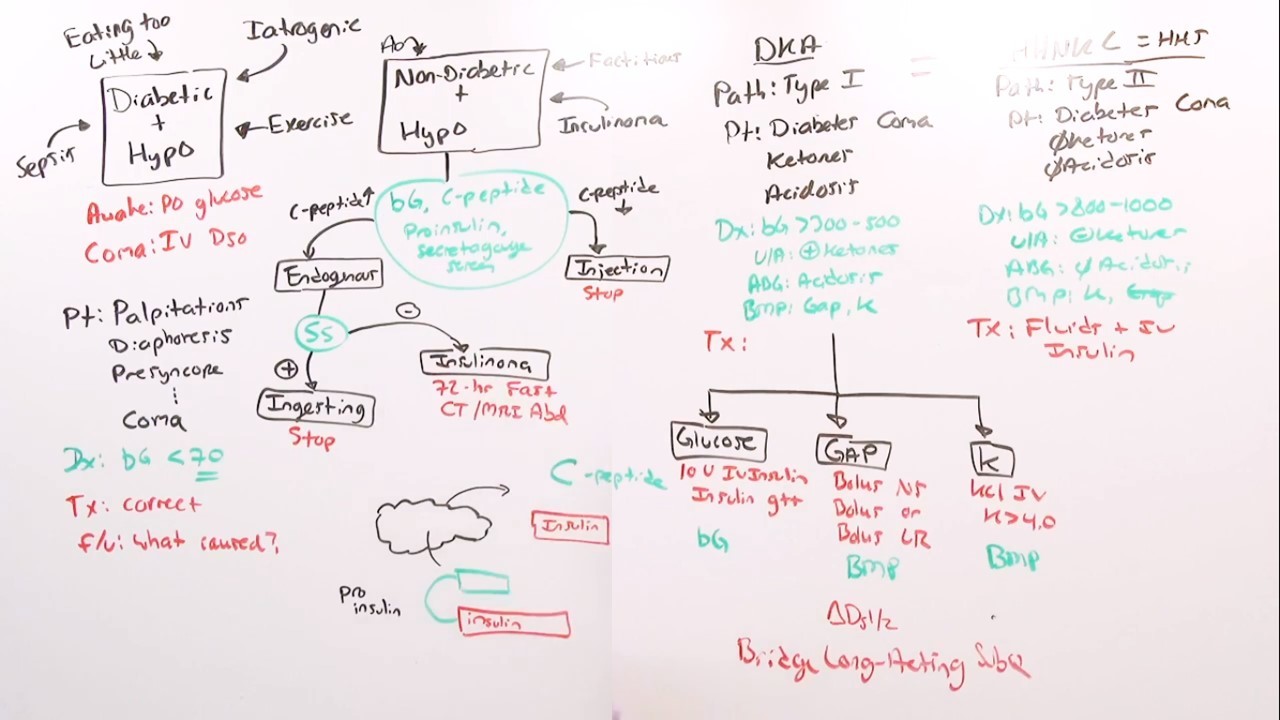 Eating too
Little
Iatrogenic
Diabetic
+
HypO
Exercise
Sepsis
Awake: PO glucose
Coma: IV D50
Pt: Palpitations
Diaphoresis
Presyncope
Coma
Dx: bG <70
Tx: correct
f/u: what caused?
Non-Diabetic
+
HypO
Factitious
Insulinoma
bG, C-peptide
Proinsulin,
secretagogue
screen
C-peptide↑
C-peptide
↓
Endogenous
Injection
Stop
SS
+
-
Ingesting
Stop
Insulinoma
72-hr Fast
CT/MRI Abd
C-peptide
Insulin
Pro
insulin
insulin
DKA
Path: Type I
Pt: Diabetes Coma
Ketones
Acidosis
Dx: bG >300-500
U/A: ⊕Ketones
ABG: Acidosis
Bmp: Gap, K
Tx:
=
HHNKC = HHS
Path: Type II
Pt: Diabetes Coma
∅Ketones
∅Acidosis
Dx: bG >800-1000
U/A: ⊖Ketones
ABG: ∅ Acidosis
Bmp: K, Gap
Tx: Fluids + IV
Insulin
Glucose
10 U IV Insulin
Insulin gtt
bG
GAP
Bolus NS
Bolus or
Bolus LR
Bmp
K
KCl IV
K>4.0
Bmp
ΔD5 1/2
Bridge Long-Acting SubQ